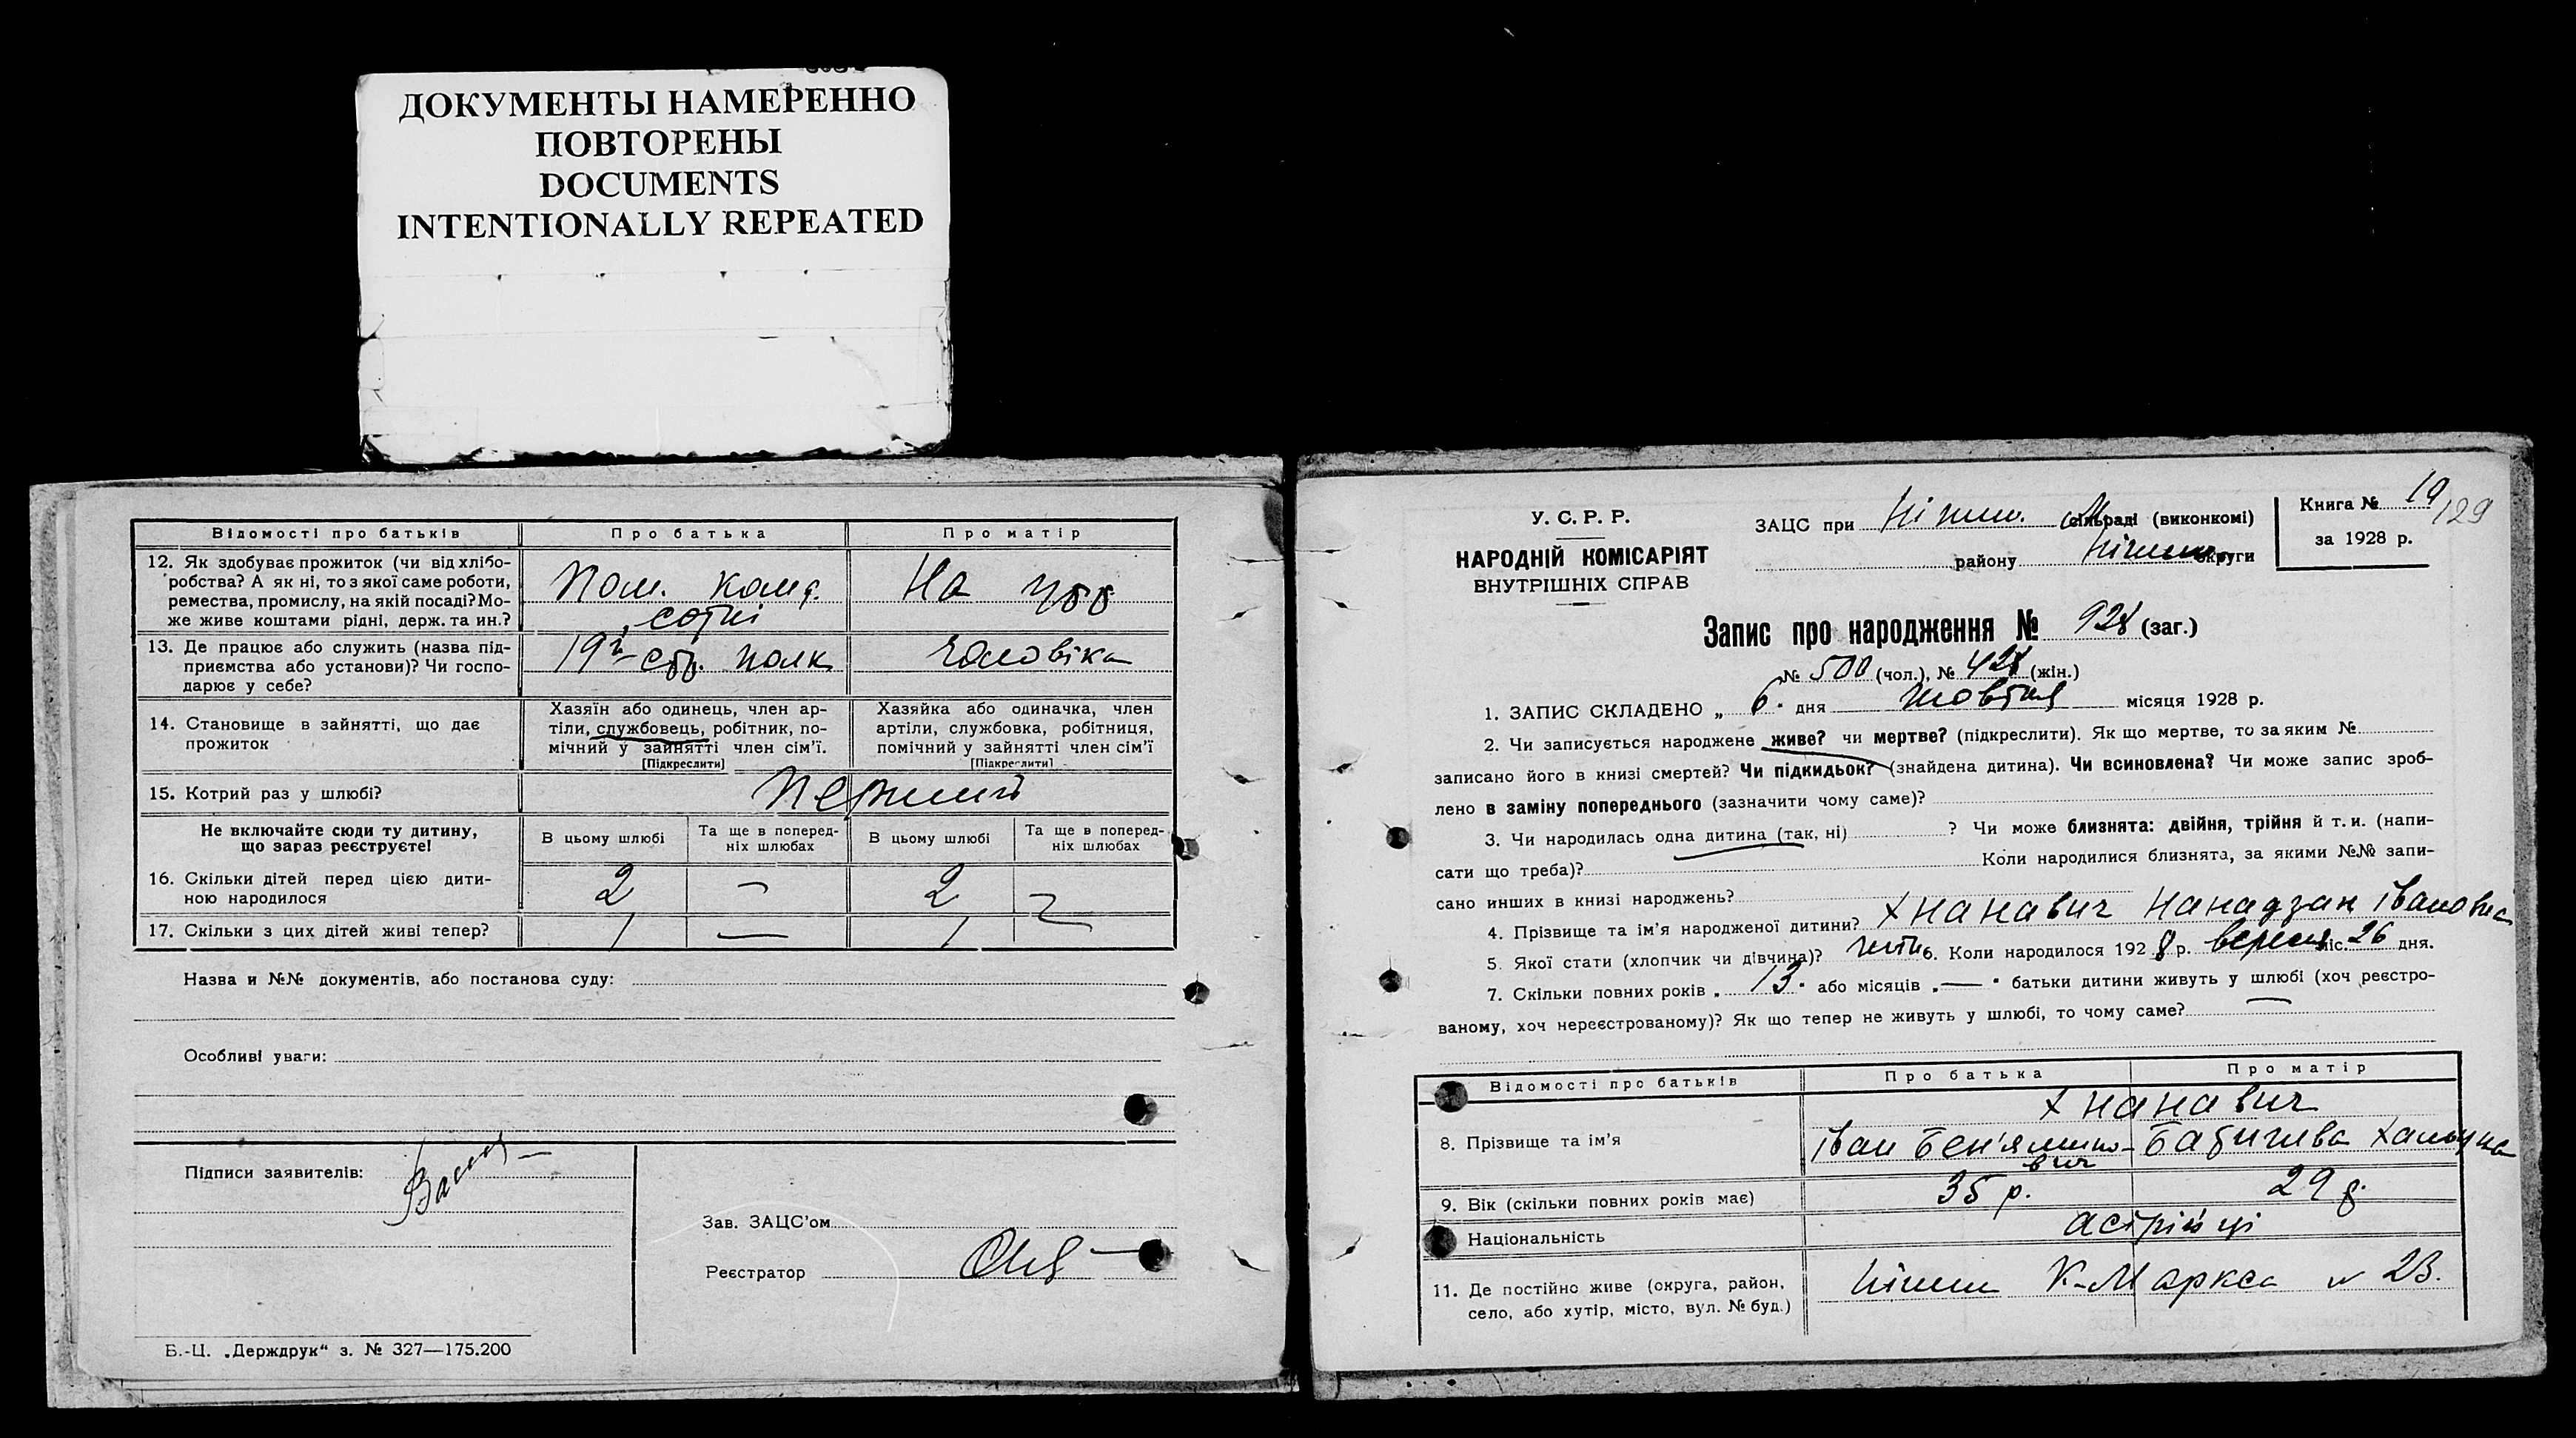 ДОКУМЕНТЫ НАМЕРЕННО
ПОВТОРЕНЫ
DOCUMENTS
INTENTIONALLY REPEATED
Відомості про батьків Про батька Про матір
12. Як здобуває прожиток (чи від хлібо-
робства? А як ні, то з якої саме роботи,
ремества, промислу, на якій посаді? Мо-
же живе коштами рідні, держ. та ин.?
Пом. команд. сотні
На
13. Де працює або служить (назва під-
приємства або установи)? Чи госпо-
дарює у себе?
полк
чоловіка
14. Становище в зайнятті, що дає
прожиток
Хазяїн або одинець, член ар-
тілі, службовець, робітник, по-
мічний у зайнятті член сім'ї.
[Підкреслити]
Хазяйка або одиначка, член
артілі, службовка, робітниця,
помічний у зайнятті член сім'ї
[Підкреслити]
15. Котрий раз у шлюбі? перший
Не включайте сюди ту дитину,
що зараз реєструєте!
В цьому шлюбі Та ще в поперед-
ніх шлюбах В цьому шлюбі Та ще в поперед-
ніх шлюбах
16. Скільки дітей перед цією дити-
ною народилося 2 — 2 —
17. Скільки з цих дітей живі тепер? 1 — 1 —
Назва и №№ документів, або постанова суду:
Особливі уваги:
Підписи заявителів:
Зав. ЗАЦС'ом
Реєстратор
Б.-Ц. „Держдрук“ з. № 327—175.200
У. С. Р. Р.
НАРОДНІЙ КОМІСАРІЯТ
ВНУТРІШНІХ СПРАВ
ЗАЦС при Ніжин. сільраді (виконкомі)
району Ніжин. округи
Книга № 19/129
за 1928 р.
Запис про народження № 928 (заг.)
№ 500 (чол.), № 428 (жін.)
1. ЗАПИС СКЛАДЕНО „ 6 " дня жовтня місяця 1928 р.
2. Чи записується народжене живе? чи мертве? (підкреслити). Як що мертве, то за яким №
записано його в книзі смертей? Чи підкидьок? (знайдена дитина). Чи всиновлена? Чи може запис зроб-
лено в заміну попереднього (зазначити чому саме)?
3. Чи народилась одна дитина (так, ні) ? Чи може близнята: двійня, трійня й т. и. (напи-
сати що треба)? Коли народилися близнята, за якими №№ запи-
сано инших в книзі народжень?
4. Прізвище та ім'я народженої дитини? Хнанавич Нанадзан Івановна
5. Якої стати (хлопчик чи дівчина)? 6. Коли народилося 1928 р. вересня міс. 26 дня.
7. Скільки повних років „ 13 " або місяців „ — " батьки дитини живуть у шлюбі (хоч реєстро-
ваному, хоч нереєстрованому)? Як що тепер не живуть у шлюбі, то чому саме? —
Відомості про батьків Про батька Про матір
Хнанавич
8. Прізвище та ім'я Іван Бен'ямино-
вич
9. Вік (скільки повних років має) 35 р. 29 р.
Національність асірійці
11. Де постійно живе (округа, район,
село, або хутір, місто, вул. № буд.)
Ніжин К-Маркса № 23.